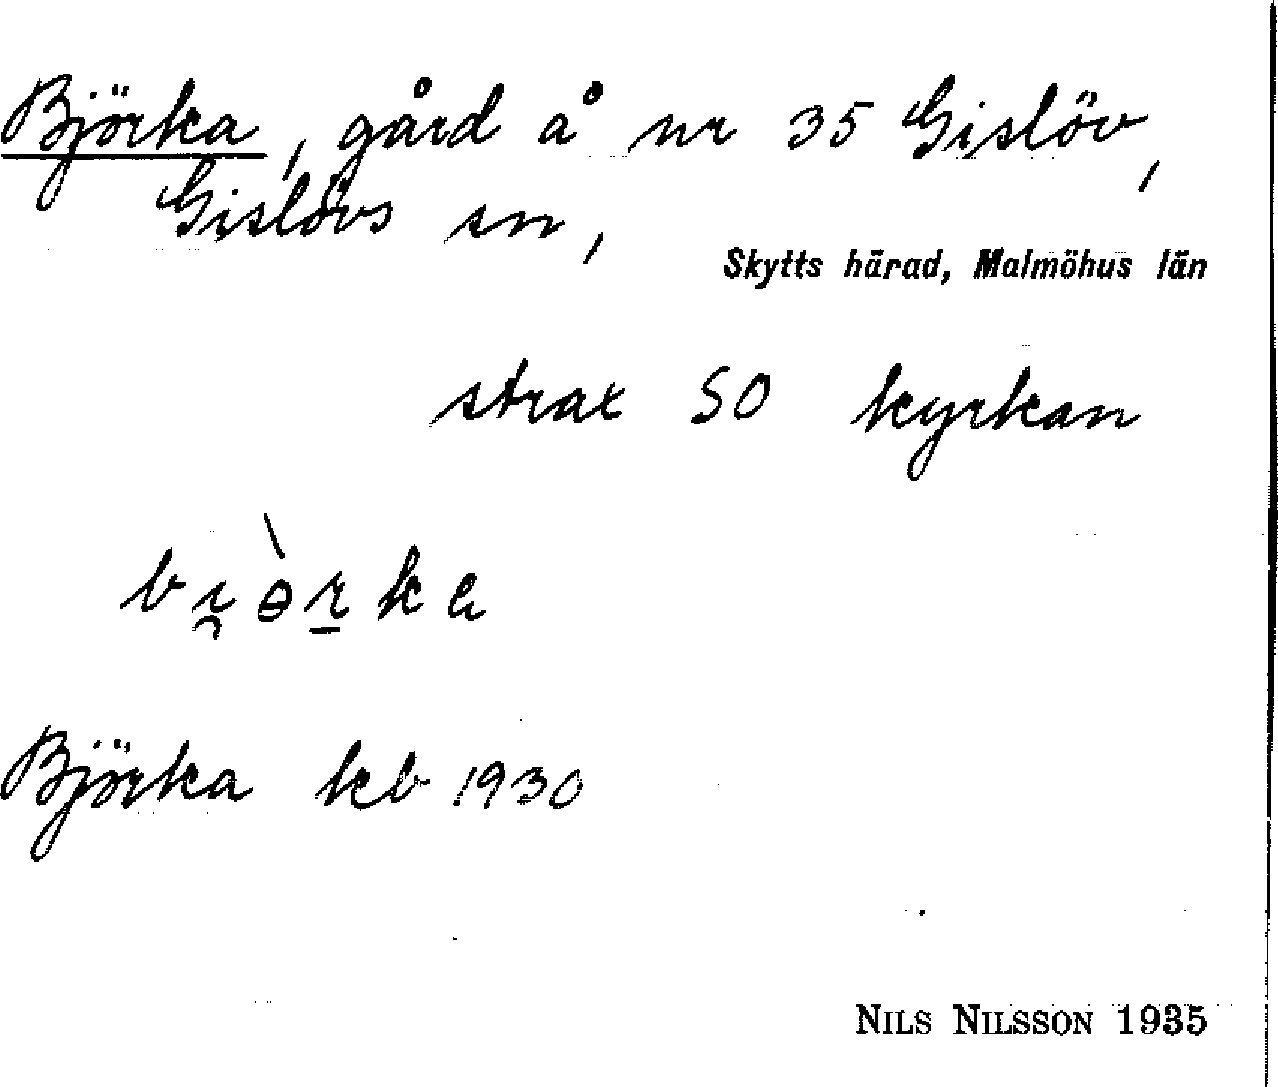 Björka, gård å nr 35 Gislöv,
Gislövs sn,
Skytts härad, Malmöhus län
strax SO kyrkan
Björka kb 1930
NILS NILSSON 1935